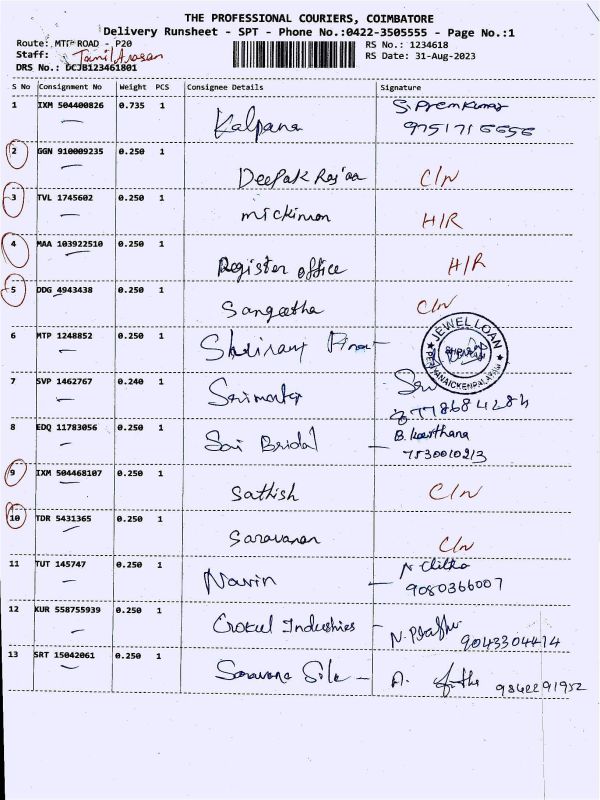 THE PROFESSIONAL COURIERS, COIMBATORE
Delivery Runsheet - SPT - Phone No.:0422-3505555 - Page No.:1
Route: MTP ROAD - P20 RS No.: 1234618
Staff: Tamil Arasan RS Date: 31-Aug-2023
DRS No.: DCJB123461801
S No Consignment No Weight PCS Consignee Details Signature
1 IXM 504400826 0.735 1 Kalpana S. Prem Kumar
9751716656
2 GGN 910009235 0.250 1
Deepak Raj C/N
3 TVL 1745602 0.250 1 mickinon H/R
4 MAA 103922510 0.250 1
Register office H/R
5 DDG 4943438 0.250 1
Sangeetha C/N
6 MTP 1248852 0.250 1 Shriram
JEWEL LOAN
PERIYANAICKENPALAYAM
7 SVP 1462767 0.240 1 Sri
8778684284
8 EDQ 11783056 0.250 1 Sai Bridal B. Keerthana
7530010213
9 IXM 504468107 0.250 1
Sathish C/N
10 TDR 5431365 0.250 1
Saravanan C/N
11 TUT 145747 0.250 1 Navin
9080366007
12 KUR 558755939 0.250 1 Gokul Industries N. Prabhu
9043304414
13 SRT 15042061 0.250 1 Saravana Silk A.
9842291952